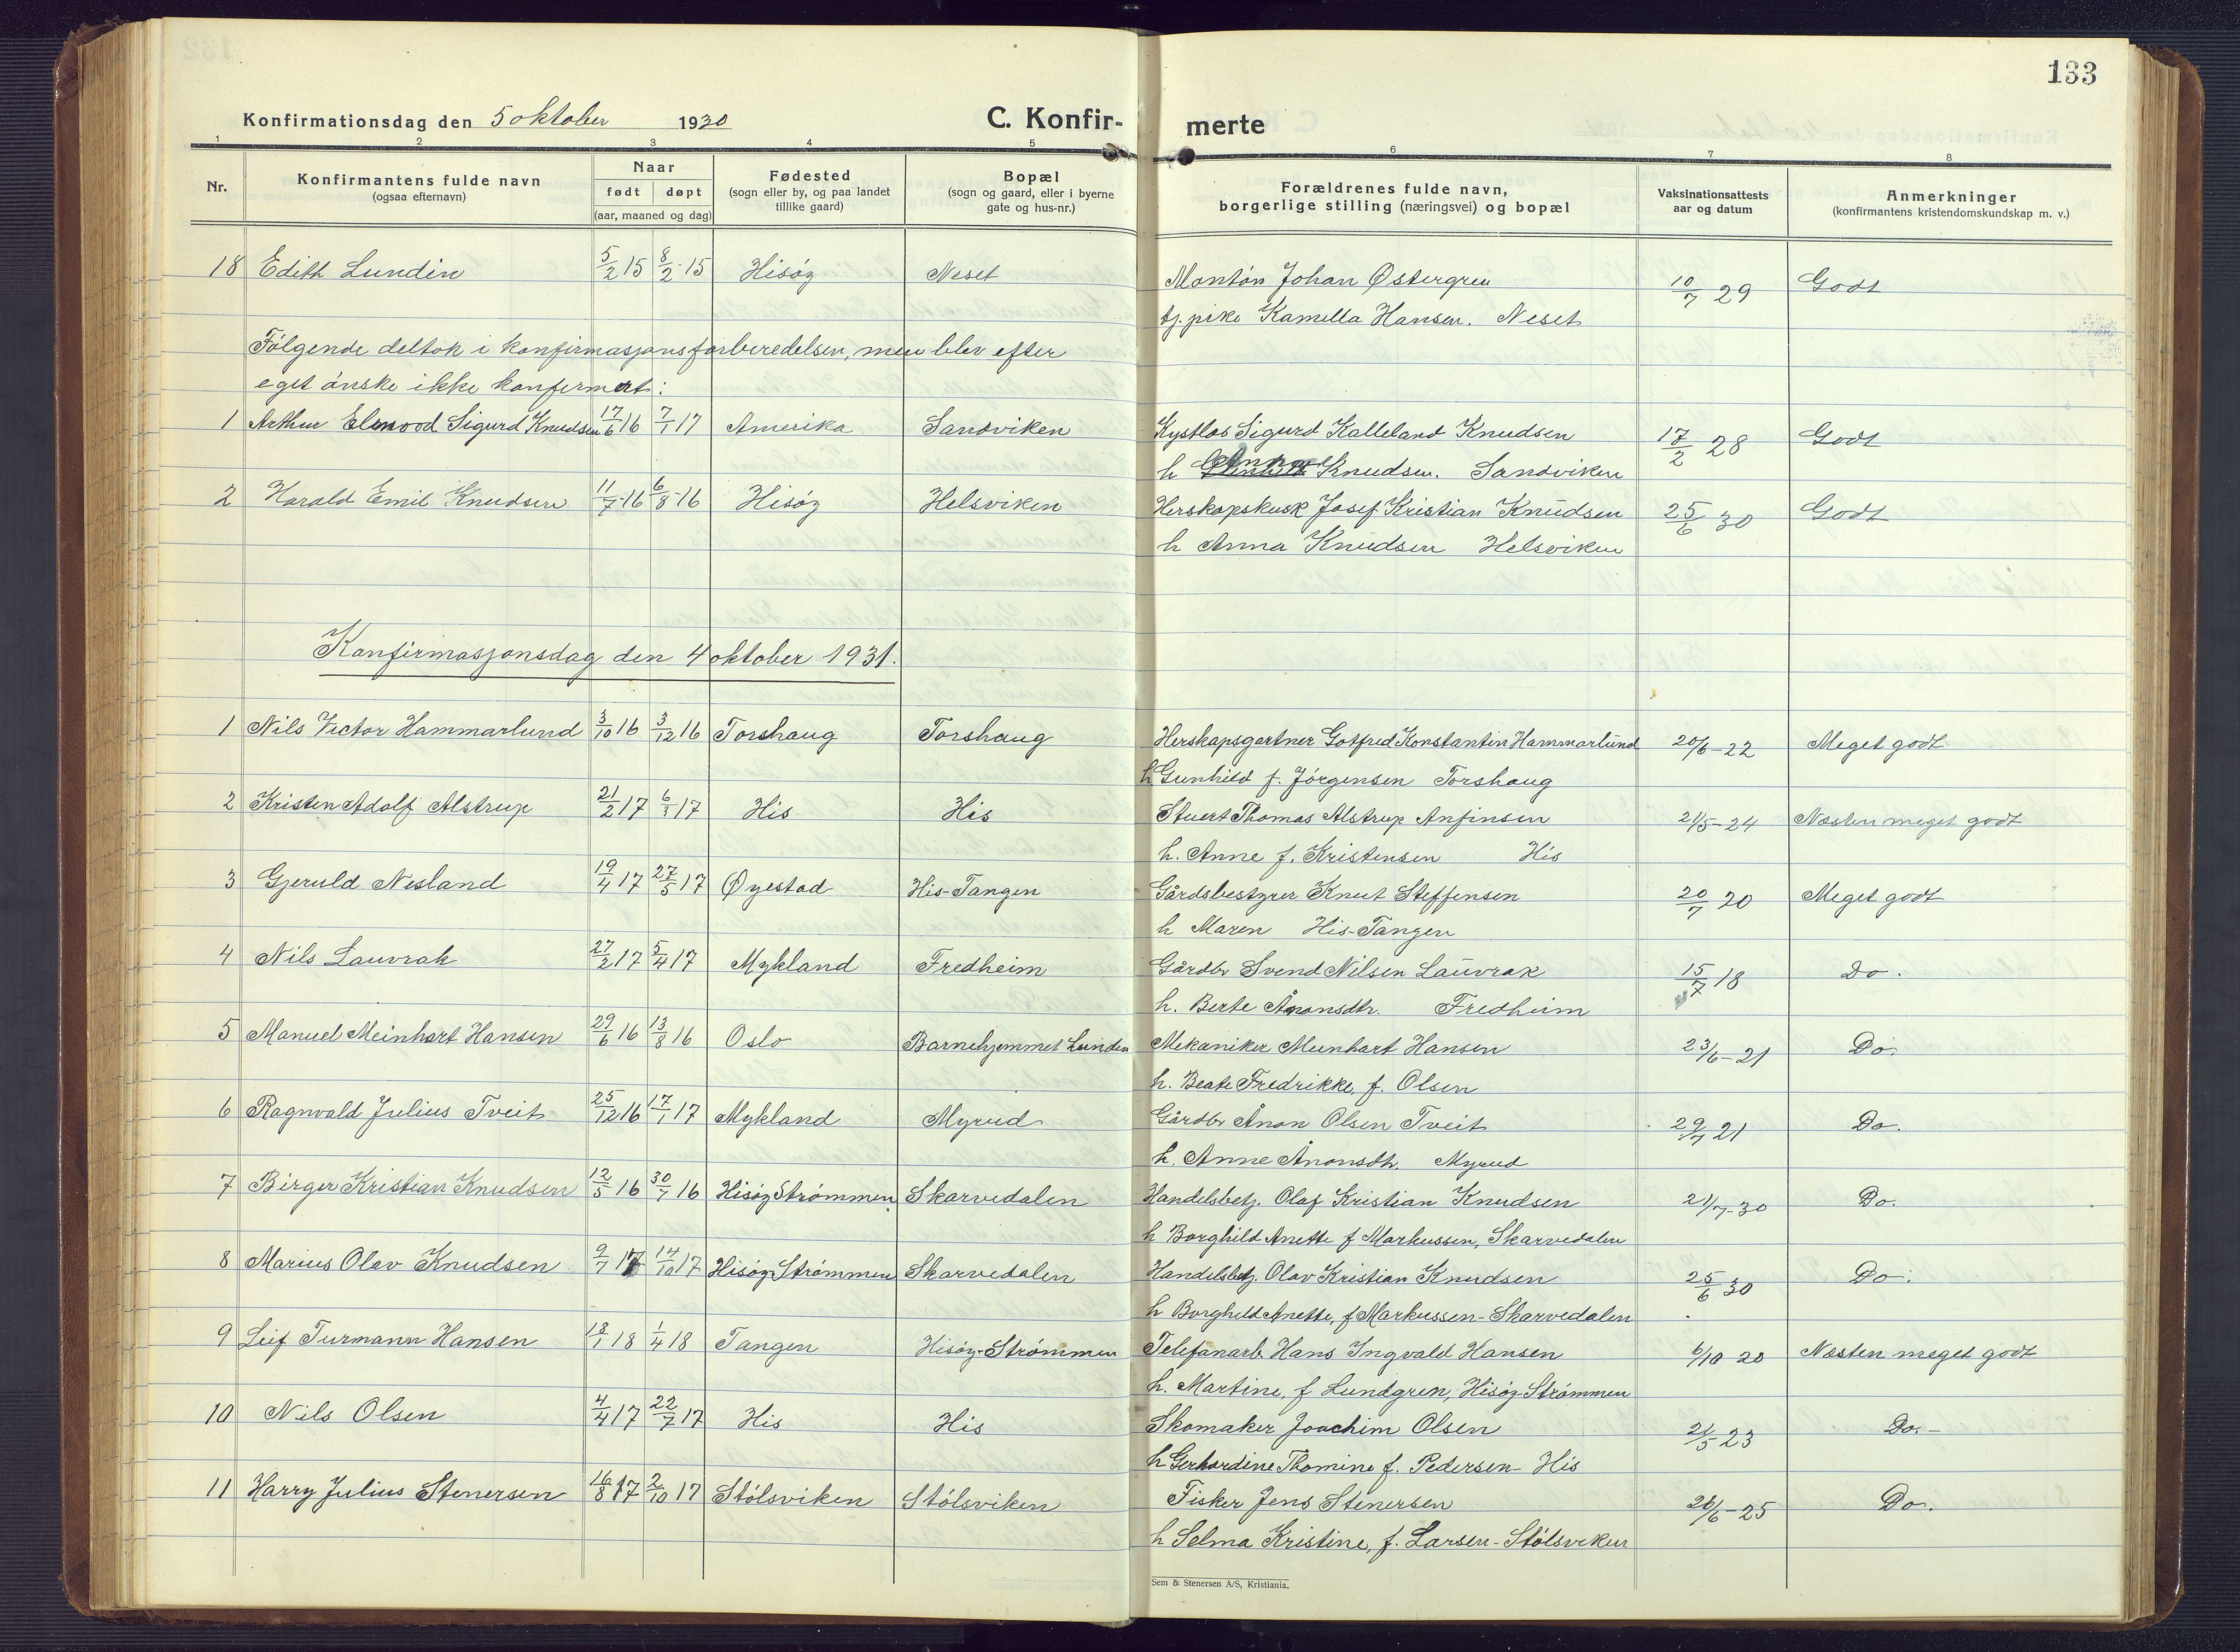 133
Konfirmationsdag den 5 oktober 1930
C. Konfir-
merte
1 2 3 4 5 6 7 8
Nr.
Konfirmantens fulde navn
(ogsaa efternavn)
Naar
født døpt
(aar, maaned og dag)
Fødested
(sogn eller by, og paa landet
tillike gaard)
Bopæl
(sogn og gaard, eller i byerne
gate og hus-nr.)
Forældrenes fulde navn,
borgerlige stilling (næringsvei) og bopæl
Vaksinationsattests
aar og datum
Anmerkninger
(konfirmantens kristendomskundskap m. v.)
18 Edith Lundin 5/2 15 8/2 15 Hisøy Neset Montør Johan Østergren 10/7 29 Godt
tj. pike Kamella Hansen. Neset
Følgende deltok i konfirmasjonsforberedelsen, men blev efter
eget ønske ikke konfermert:
1 Arthur Elmood Sigurd Knudsen 17/6 16 7/1 17 Amerika Sandviken Kystlos Sigurd Kalleland Knudsen 17/2 28 Godt
h Anna Knudsen. Sandviken
2 Harald Emil Knudsen 11/7 16 6/8 16 Hisøy Helsviken Herskapskusk Josef Kristian Knudsen 25/6 30 Godt
h Anna Knudsen Helsviken
Konfirmasjonsdag den 4 oktober 1931.
1 Nils Victor Hammarlund 3/10 16 3/12 16 Torshaug Torshaug Herskapsgartner Gotfred Konstantin Hammarlund 20/6-22 Meget godt
h Gunhild f. Jørgensen Torshaug
2 Kristen Adolf Alstrup 21/2 17 6/3 17 His His Stuert Thomas Alstrup Anfinsen 21/5-24 Næsten meget godt
h. Anne f. Kristensen His
3 Gjeruld Nesland 19/4 17 27/5 17 Øyestad His-Tangen Gårdsbestyrer Knut Steffensen 20/7 20 Meget godt
h Maren His-Tangen
4 Nils Lauvrak 27/2 17 5/4 17 Mykland Fredheim Gårdbr Svend Nilsen Lauvrak 15/7 18 Do.
h. Berte Ånonsdtr. Fredheim
5 Manuel Meinhart Hansen 29/6 16 13/8 16 Oslo Barnehjemmet Lunden Mekaniker Meinhart Hansen 23/6-21 Do.
h. Beate Fredrikke, f. Olsen
6 Ragnvald Julius Tveit 25/12 16 17/1 17 Mykland Myrud Gårdbr Ånon Olsen Tveit 29/7 21 Do.
h. Anne Ånonsdtr. Myrud
7 Birger Kristian Knudsen 12/5 16 30/7 16 Hisøy Strømmen Skarvedalen Handelsbetj. Olaf Kristian Knudsen 21/7-30 Do.
h Borghild Anette f Markussen, Skarvedalen
8 Marius Olav Knudsen 9/7 17 14/10 17 Hisøy Strømmen Skarvedalen Handelsbetj. Olav Kristian Knudsen 25/6 30 Do.
h Borghild Anette, f Markussen-Skarvedalen
9 Leif Turmann Hansen 18/1 18 1/4 18 Tangen Hisøy-Strømmen Telefonarb Hans Ingvald Hansen 6/10 20 Næsten meget godt
h. Martine, f Lundgren, Hisøy-Strømmen
10 Nils Olsen 4/4 17 22/7 17 His His Skomaker Joachim Olsen 21/5 23 Do.-
h Gerhardine Thomine f. Pedersen-His
11 Harry Julius Stenersen 16/8 17 2/10 17 Stølsviken Stølsviken Fisker Jens Stenersen 26/6-25 Do.
h Selma Kristine, f. Larsen-Stølsviken
Sem & Stenersen A/S, Kristiania.